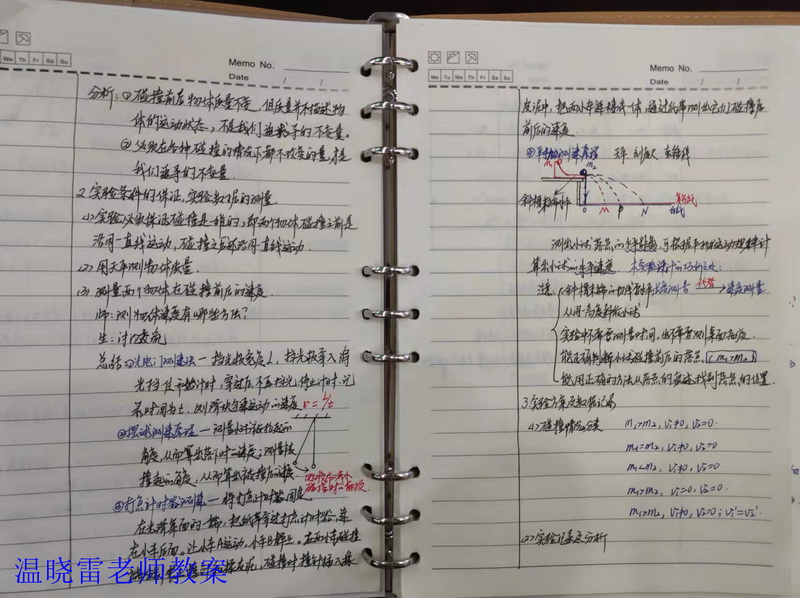 Memo No.
Date / /
We Th Fr Sa Su
分析:①碰撞前后物体质量不变,但质量并不描述物
体的运动状态,不是我们追寻的不变量。
②必须在各种碰撞的情况下都不改变的量,才是
我们追寻的不变量。
2.实验条件的保证,实验数据的测量
(1)实验必须保证碰撞是一维的,即两个物体碰撞之前是
沿同一直线运动,碰撞之后还沿同一直线运动。
(2)用天平测物体质量
(3)测量两个物体在碰撞前后的速度
师:测物体速度有哪些方法?
生:讨论交流
总结
光挡住开始计时,穿过后不再挡光,停止计时,记
录时间为t,则滑块匀速运动的速度 v=L/t
②摆球测速原理—测量小球被拉起的
角度,从而算出落下时的速度;测量被
撞起的角度,从而算出被撞后的速度
③打点计时器测速—将打点计时器固定
在光滑桌面的一端,把纸带穿过打点计时器,连
在小车后面。让小车A运动,小车B静止。在两小车碰撞
碰撞时撞针插入橡
Memo No.
Date / /
Mo Tu We Th Fr Sa Su
皮泥中,把两小车连接成一体,通过纸带测出它们碰撞
前后的速度
④平抛测速原理 天平 刻度尺
m₁ m₂
斜槽末端水平
O M P N
测出小球落点的水平距离,可根据平抛运动规律计
算出小球的水平速度
注:斜槽末端的切线水平 长度测量 代替 速度测量
从同一高度释放小球
实验中不需要测量时间,也不需要测桌面高度
能正确判断小球碰撞前后的落点(m₁>m₂)
能用正确的方法从落点的痕迹找到落点的位置
3.实验方案及数据记录
(1)碰撞情况分类 m₁>m₂, v₁≠0, v₂=0
m₁=m₂, v₁≠0, v₂=0
m₁<m₂, v₁≠0, v₂=0
m₁>m₂, v₁=0, v₂=0
m₁>m₂, v₁≠0, v₂=0; v₁'=v₂'
(2)实验
分析
温晓雷老师教案